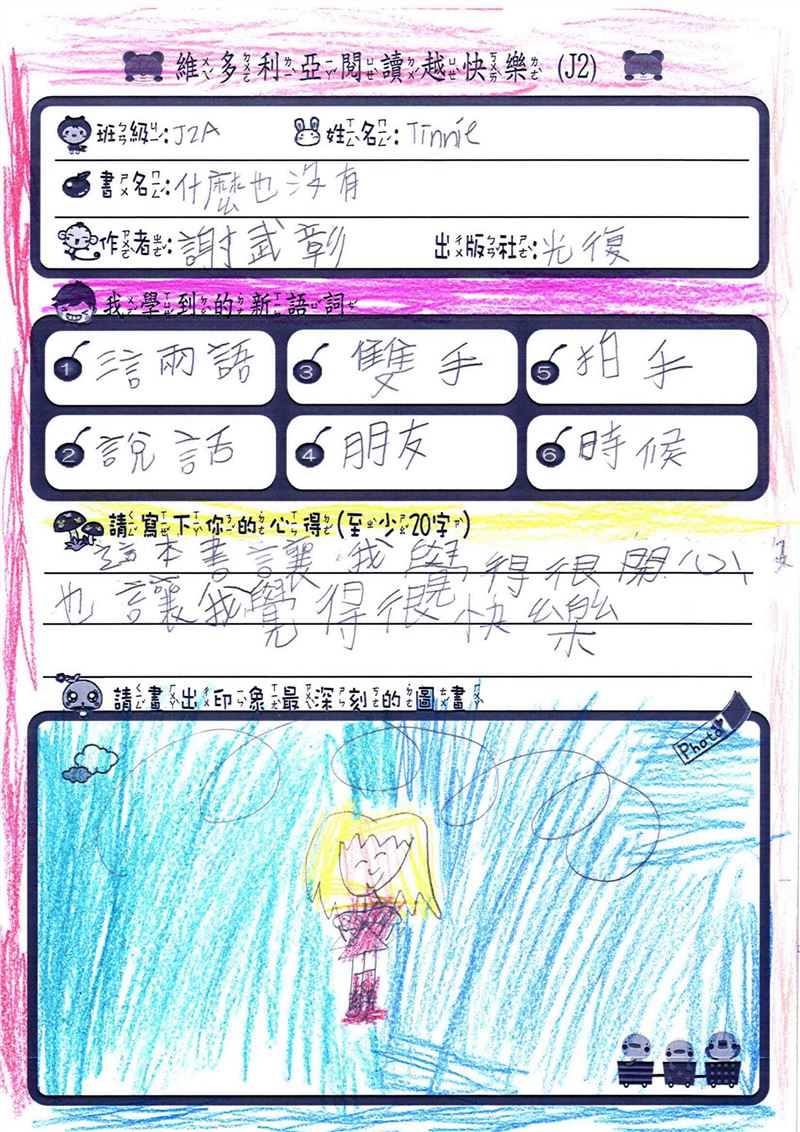 維多利亞閱讀越快樂 (J2)
班級:J2A 姓名:Tinnie
書名:什麼也沒有
作者:謝武彰 出版社:光復
我學到的新語詞
1 三言兩語 3 雙手 5 拍手
2 說話 4 朋友 6 時候
請寫下你的心得(至少20字)
這本書讓我覺得很開心
也讓我覺得很快樂
請畫出印象最深刻的圖畫
Photo